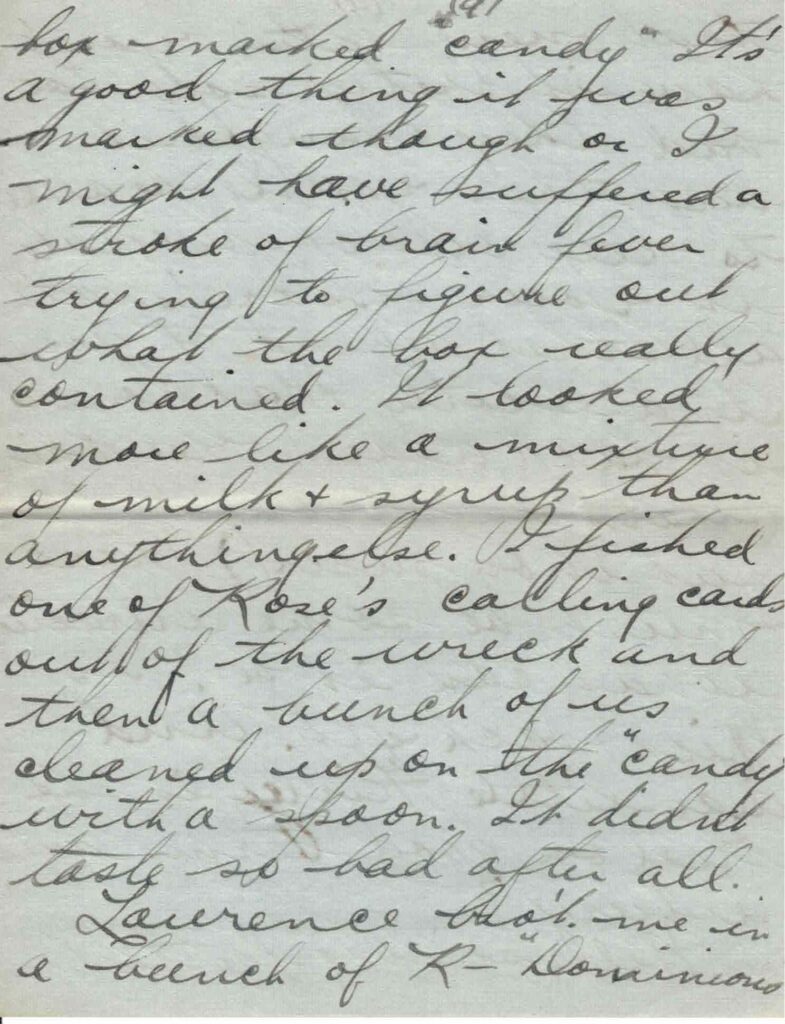 box marked "candy" It's
a good thing it was
marked though or I
might have suffered a
stroke of brain fever
trying to figure out
what the box really
contained. It looked
more like a mixture
of milk + syrup than
anything else. I fished
one of Rose's calling cards
out of the wreck and
then a bunch of us
cleaned up on the "candy
with a spoon. It didn't
taste so bad after all.
Lawrence bro't me in
a bunch of R- "Dominions